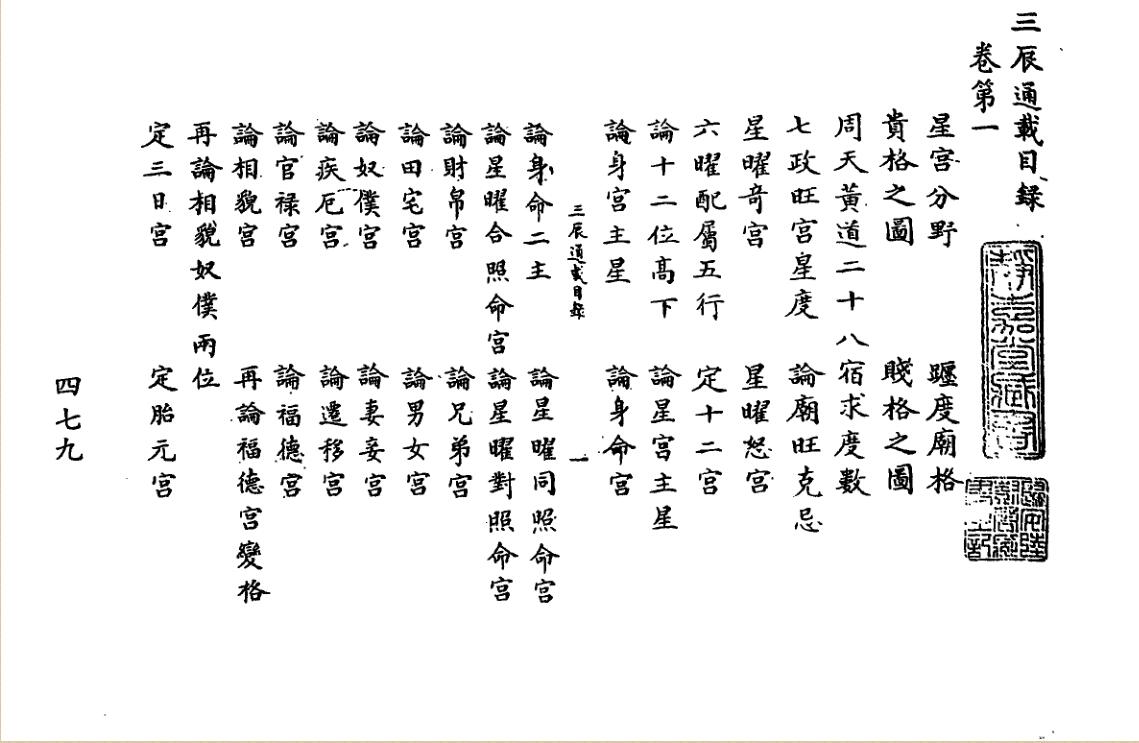 三辰通載目録
卷第一
星宮分野 躔度廟格
貴格之圖 賤格之圖
周天黃道二十八宿求度數
七政旺宮星度 論廟旺克忌
星曜竒宮 星曜怒宮
六曜配屬五行 定十二宮
論十二位高下 論星宮主星
論身宮主星 論身命宮
三辰通載目錄 一
論身命二主 論星曜同照命宮
論星曜合照命宮 論星曜對照命宮
論財帛宮 論兄弟宮
論田宅宮 論男女宮
論奴僕宮 論妻妾宮
論疾厄宮 論遷移宮
論官禄宮 論福德宮
論相貌宮 再論福德宮變格
再論相貌奴僕兩位
定三日宮 定胎元宮
四七九